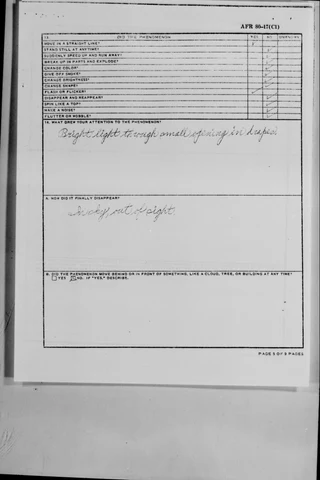 AFR 80-17(C1)
14. DID THE PHENOMENON YES NO UNKNOWN
MOVE IN A STRAIGHT LINE?
STAND STILL AT ANYTIME?
SUDDENLY SPEED UP AND RUN AWAY?
BREAK UP IN PARTS AND EXPLODE?
CHANGE COLOR?
GIVE OFF SMOKE?
CHANGE BRIGHTNESS?
CHANGE SHAPE?
FLASH OR FLICKER?
DISAPPEAR AND REAPPEAR?
SPIN LIKE A TOP?
MAKE A NOISE?
FLUTTER OR WOBBLE?
15. WHAT DREW YOUR ATTENTION TO THE PHENOMENON?
Bright light through small opening in drapes
A. HOW DID IT FINALLY DISAPPEAR?
out of sight.
B. DID THE PHENOMENON MOVE BEHIND OR IN FRONT OF SOMETHING, LIKE A CLOUD, TREE, OR BUILDING AT ANY TIME?
YES NO. IF "YES," DESCRIBE.
PAGE 3 OF 5 PAGES